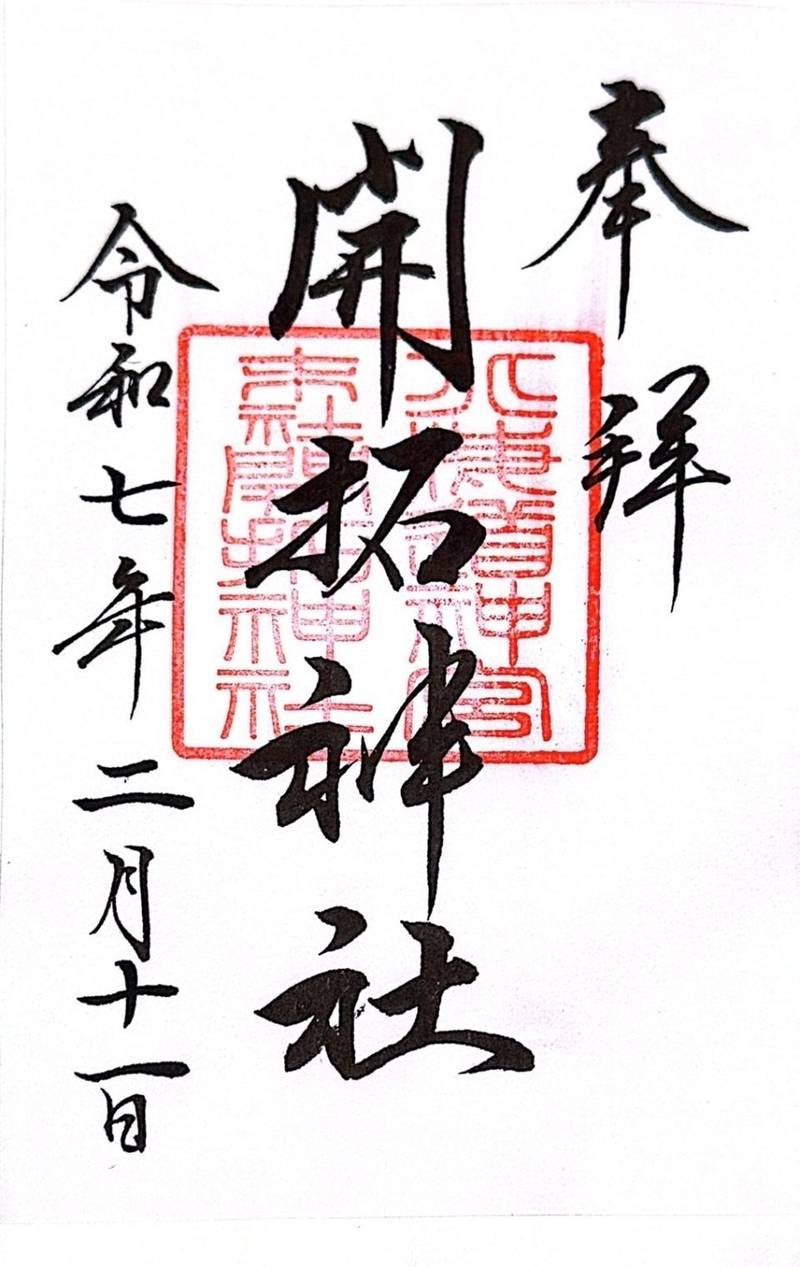 奉拝
開拓神社
令和七年二月十一日
北海道神宮
末社開拓神社